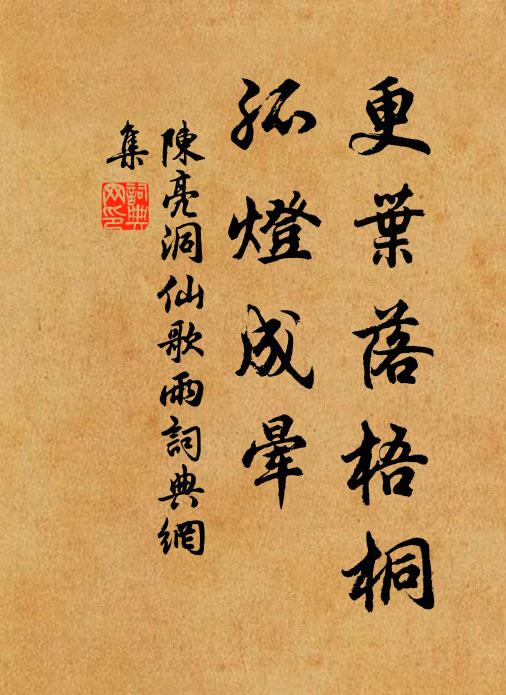 更葉落梧桐
孤燈成暈
陳亮洞仙歌雨詞典網
集
詞典網印